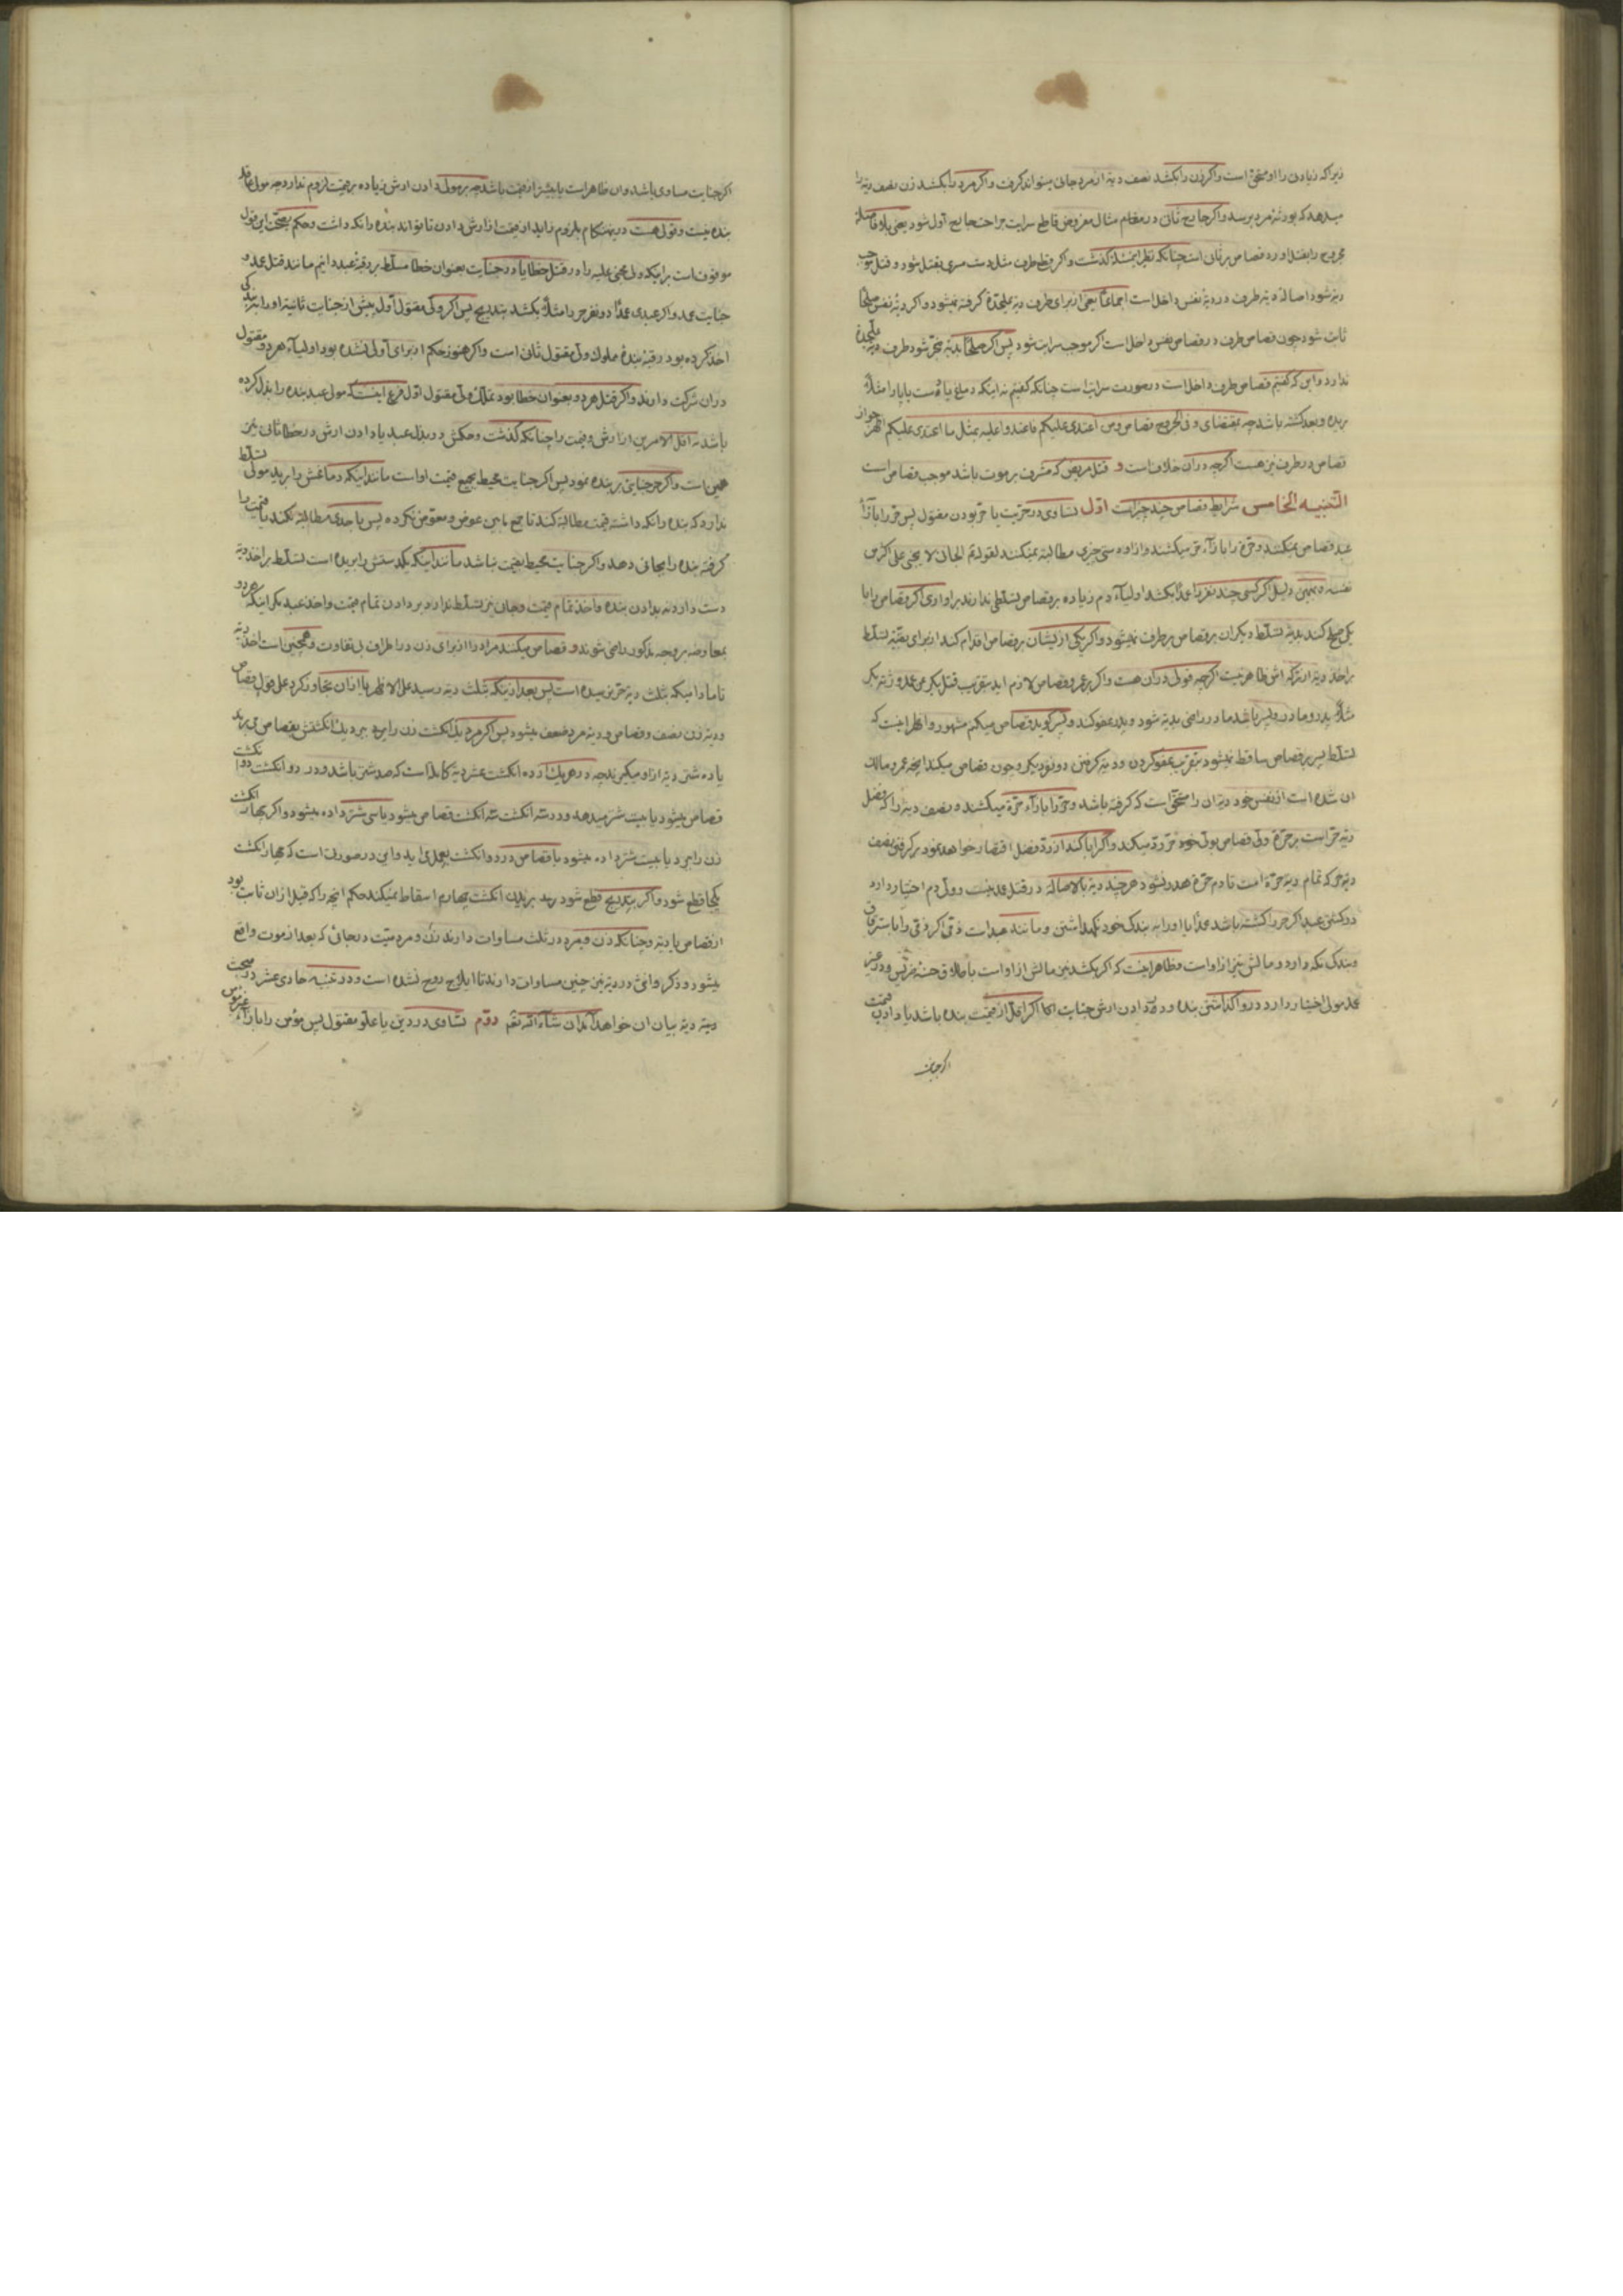 زیراکه زیادتی را او مستحق است واکر زن را بکشد نصف دیه از مرد جانی میتواند کرفت واکر مرد را بکشد زن نصف دیه را
میدهد که بورثهٔ مرد برسد واکر جارح ثانی در مقام مثال مفروض قاطع سرایت جراحت جارح اول شود یعنی بلا فاصله
مجروح را بقتل اورد قصاص بر ثانی است چنانکه نظیر اینمسئله کذشت واکر قطع طرف مثل دست مسری بقتل شود و قتل موجب
دیه شود اصالة دیه طرف در دیهٔ نفس داخل است اجماعًا یعنی از برای طرف دیهٔ علیحدهٔ کرفته نمیشود واکر دیهٔ نفس صلحًا
ثابت شود چون قصاص طرف در قصاص نفس داخل است اکر موجب سرایت شود پس اکر صلحًا بدیه منجر شود طرف دیه علیحدهٔ
ندارد واین که کفتیم قصاص طرف داخل است در صورت سرایت است چنانکه کفتیم نه اینکه دماغ یا دست یا پا را مثلاً
بریده وبعد کشته باشد چه بمقتضای و فی الجروح قصاص ومن اعتدی علیکم فاعتدوا علیه بمثل ما اعتدی علیکم اظهر جواز
قصاص در طرف نیز هست اکرچه در ان خلاف است و قتل مریض که مشرف بر موت باشد موجب قصاص است
التنبیه الخامس شرایط قصاص چند چیز است اوّل تساوی در حریت یا حر بودن مقتول پس حر را بازاء
عبد قصاص نمیکنند وحرهٔ را بازاء حر میکشند وازاوه سی چیزی مطالبه نمیکنند لقولهم الجانی لا یجنی علی اکثر من
نفسه وبهمین دلیل اکر کسی چند نفر را عمدًا بکشد اولیاء دم زیاده بر قصاص تسلطی ندارند بر او اری اکر قصاص را با
یکی صلح کند بدیه تسلط دیکران بر قصاص بر طرف نمیشود واکر یکی از یشان بر قصاص اقدام کند از برای بقیهٔ تسلط
بر اخذ دیه از ترکه اش ظاهر نیست اکرچه قولی در ان هست واکر بر عمرو قصاص لازم اید بتقریب قتل بکر
مثلاً پدر ومادر وپسر باشد مادر راضی بدیه شود وپدر عفو کند وپسر کوید قصاص میکنم مشهور واظهر اینست که
تسلط پسر بر قصاص ساقط نمیشود بتقریب عفو کردن ودیه کرفتن دو نفر دیکر وچون قصاص میکند انچه عمرو مالک
ان شده است از نفس خود دیهٔ ان را مستحق است که کرفته باشد وحر را بازاء حرهٔ میکشند ونصف دیه را که فضل
دیه حر است بر حرهٔ ولی قصاص بولی خود حر رد میکند واکر ابا کند از رد فضل اقتصار خواهد نمود بر کرفتن نصف
دیه حر که تمام دیه حرهٔ است تا دم حرهٔ هدر نشود هر چند دیه بالاصالة در قتل عمد نیست و ولی دم اختیار دارد
در کشتن عبد اکر حر را کشته باشد عمدًا یا او را به بندکی خود نکهداشتن ومانند عبد است ذمّی اکر ذمّی را یا باسترقاق
وبندکی نکه دارد ومالش نیز از او است وظاهر اینست که اکر بکشدش نیز مالش از او است باطلاق حسنهٔ ضریس ودر غیر
عمد مولی اختیار دارد در واکذاشتن بنده ودر دادن ارش جنایت انکا اکر اقل از قیمت بنده باشد یا دادن قیمت
اکر جنایت
اکر جنایت مساوی باشد وان ظاهر است یا بیشتر از قیمت باشد چه بر مولی دادن ارش زیاده بر قیمت لزوم ندارد چه مولی عاقله
بنده نیست وقولی هست در ینهنکام بلزوم زاید از قیمت از ارش دادن تا تواند بنده را نکه داشت وحکم بصحت این قول
موقوف است بر اینکه ولی مجنی علیه را در قتل خطا یا در جنایت بعنوان خطا مسلط بر رقبهٔ عبد دانیم مانند قتل عمد و
جنایت عمد واکر عبدی عمدًا دو نفر حر را مثلاً بکشد بتدریج پس اکر ولی مقتول اول پیش از جنایت ثانیه او را ببندکی
اخذ کرده بود رقبهٔ بنده مملوک ولی مقتول ثانی است واکر هنوز حکم از برای اولی نشده بود اولیاء هر دو مقتول
در ان شرکت دارند واکر قتل هر دو بعنوان خطا بود تملک ولی مقتول اول فرع اینست که مولی عبد بنده را بذل کرده
باشد نه اقل الامرین از ارش وقیمت را چنانکه کذشت وحکمش در بذل عبد یا دادن ارش در خطا ثانی نیز
همین است واکر حر جنایتی بر بنده نمود پس اکر جنایت محیط بجمیع قیمت او است مانند اینکه دماغش را برید مولی تسلط
ندارد که بنده را نکه داشته قیمت مطالبه کند تا جمع ما بین عوض ومعوض نکرده پس یا چیزی مطالبه نکند یا قیمت را
کرفته بنده را بجانی دهد واکر جنایت محیط بقیمت نباشد مانند اینکه یکدستش را بریده است تسلط بر اخذ دیه
دست دارد نه بدادن بنده واخذ تمام قیمت وجانی نیز تسلط ندارد بر دادن تمام قیمت واخذ عبد مکر اینکه هر دو
بمعاوضه بر وجه مذکور راضی شوند و قصاص میکنند مرد را از برای زن در اطراف بی تفاوت وهمچنین است اخذ دیه
تا مادامیکه بثلث دیه حر نرسیده است پس بعد از ینکه بثلث دیه رسید علی الاظهر یا از ان تجاوز کرد علی قول قصاص
ودیه زن نصف وقصاص ودیه مرد ضعف میشود پس اکر مرد یک انکشت زن را ببرد یک انکشتش بقصاص می برند
یا ده شتر دیه از او میکیرند چه در هر یک از ده انکشت عشر دیهٔ کامله است که صد شتر باشد ودر دو انکشت دو انکشت
قصاص میشود یا بیست شتر میدهد ودر سه انکشت سه انکشت قصاص میشود یا سی شتر داده میشود واکر چهار انکشت
زن را ببرد یا بیست شتر داده میشود یا قصاص در دو انکشت بعمل می اید واین در صورتی است که چهار انکشت
یکجا قطع شود واکر بتدریج قطع شود بریدن انکشت چهارم اسقاط نمیکند حکم انچه را که قبل از ان ثابت بود
از قصاص یا دیه وچنانکه زن ومرد در ثلث مساوات دارند زن ومرد میّت در جائی که بعد از موت واقع
میشود وذکر وانثی در دیه نیز چنین مساوات دارند تا ایلاج روح نشده است ودر تنبیه حادی عشر در مبحث
دیه بیان ان خواهد آمد ان شاء الله تعم دوّم تساوی در دین یا علو مقتول پس مؤمن را بازاء غیر مؤمن